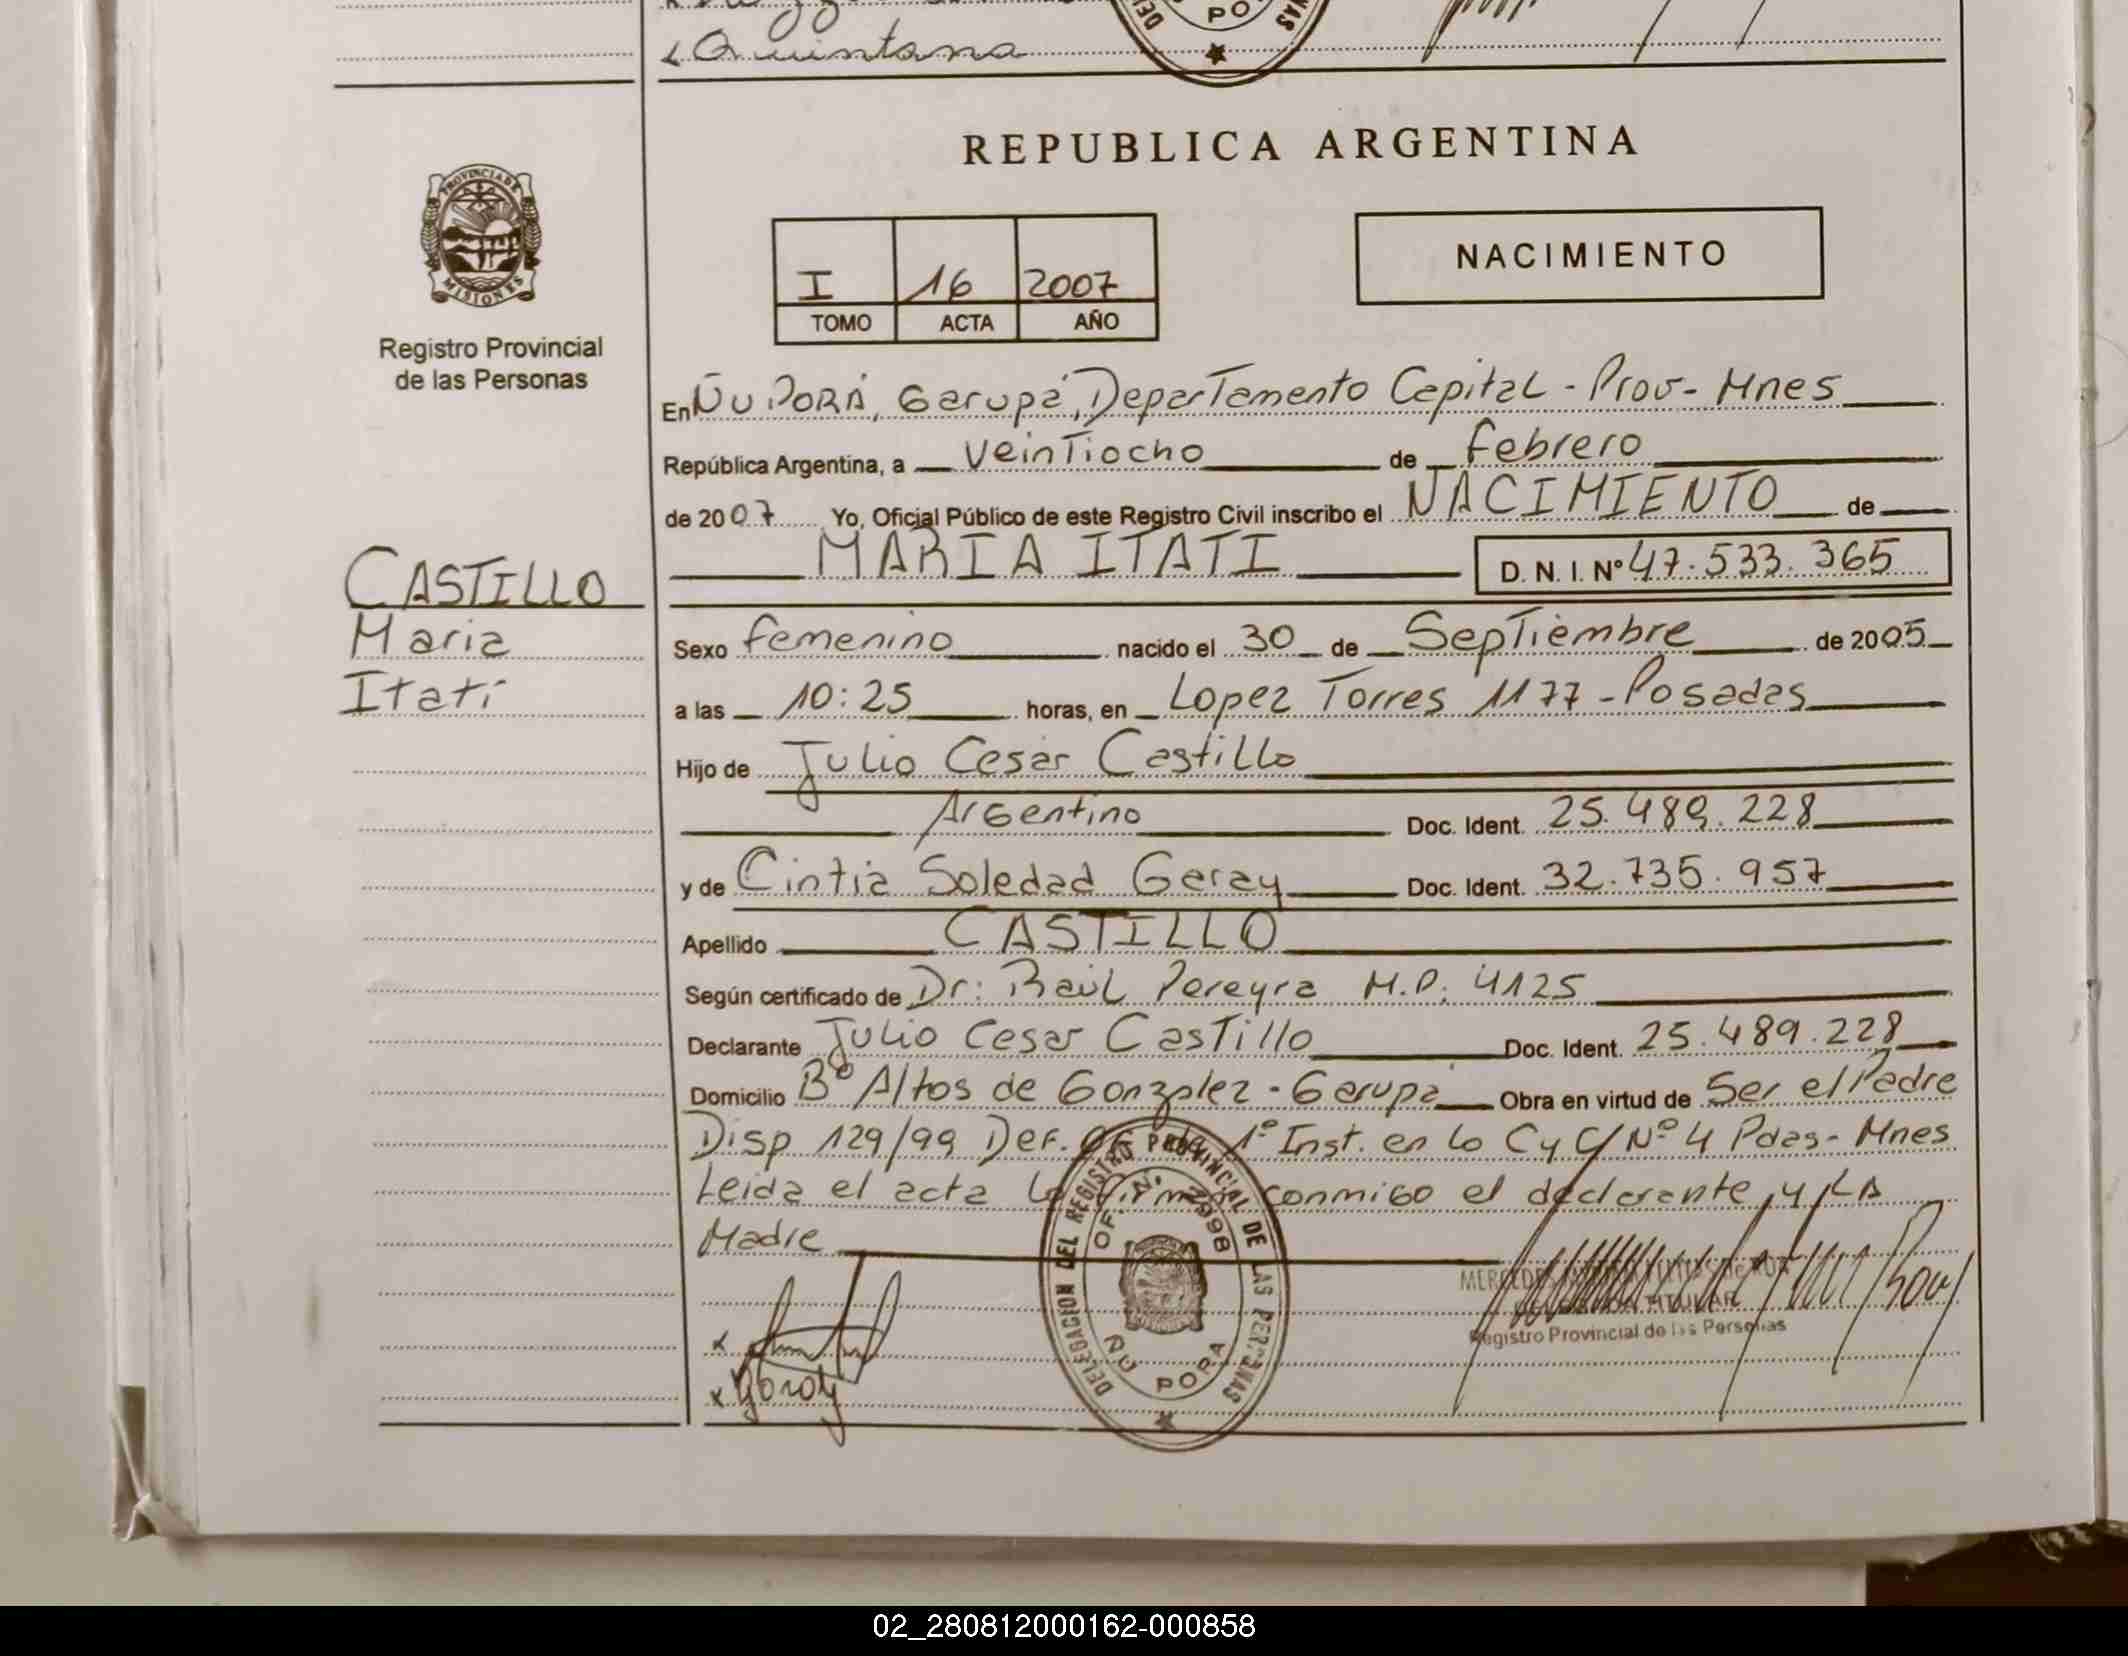 Quintana
REPUBLICA ARGENTINA
PROVINCIA DE
MISIONES
Registro Provincial
de las Personas
NACIMIENTO
I 16 2007
TOMO ACTA AÑO
En ÑU PORÁ, Garupá, Departamento Capital - Prov - Mnes
República Argentina, a veintiocho de febrero
de 2007 Yo, Oficial Público de este Registro Civil inscribo el NACIMIENTO de
MARIA ITATI D. N. I. Nº 47.533.365
CASTILLO
Maria
Itatí
Sexo femenino nacido el 30 de Septiembre de 2005
a las 10:25 horas, en Lopez Torres 1177 - Posadas
Hijo de Julio Cesar Castillo
Argentino Doc. Ident. 25.489.228
y de Cintia Soledad Garay Doc. Ident. 32.735.957
Apellido CASTILLO
Según certificado de Dr: Raúl Pereyra M.P. 4125
Declarante Julio Cesar Castillo Doc. Ident. 25.489.228
Domicilio Bº Altos de Gonzalez - Garupá Obra en virtud de Ser el Padre
Disp 129/99 Def. 1º Inst. en lo C y C Nº 4 Pdas - Mnes
Leida el acta la firman conmigo el declarante y LA
Madre
DELEGACION DEL REGISTRO PROVINCIAL DE LAS PERSONAS
OF. N. 2998
ÑU PORA
TITULAR
Registro Provincial de las Personas
02_280812000162-000858